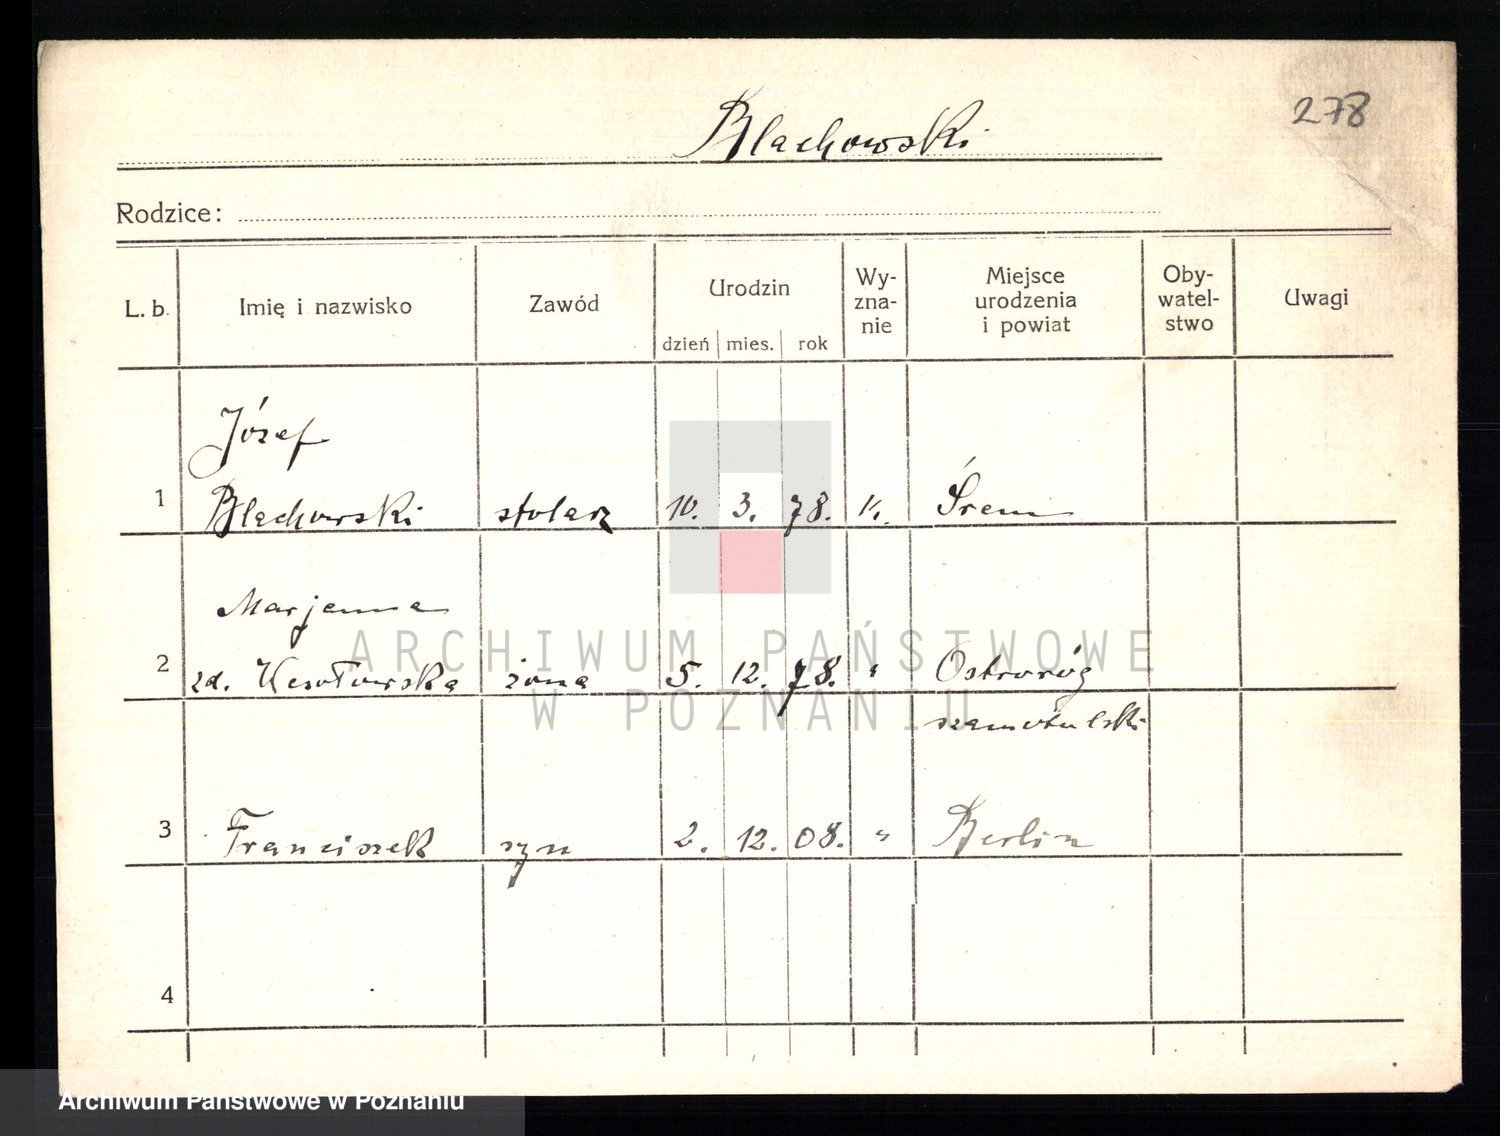 278
Blachowski
Rodzice:
L. b. Imię i nazwisko Zawód Urodzin Wy-zna-nie Miejsce urodzenia i powiat Oby-watel-stwo Uwagi
dzień mies. rok
Józef
1 Blachowski stolarz 10. 3. 78. k. Śrem
Marjanna
2 zd. Wesołowska żona 5. 12. 78. " Ostroróg
szamotulski
3 Franciszek syn 2. 12. 08. " Berlin
4
ARCHIWUM PAŃSTWOWE
W POZNANIU
Archiwum Państwowe w Poznaniu